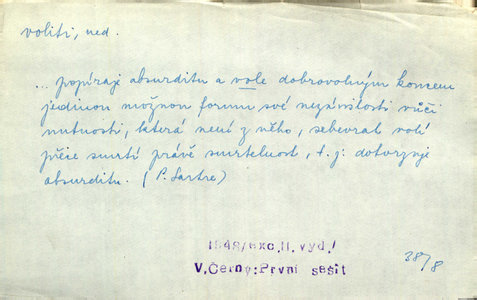 voliti, ned.
... popíraje absurditu a vole dobrovolným koncem
jedinou možnou formu své nezávislosti vůči
nutnosti, která není z něho, sebevrah volí
přece smrtí právě smrtelnost, t. j. dotvrzuje
absurditu. (P. Sartre)
1948/exc.II. vyd./
V.Černý:První sešit
38/8